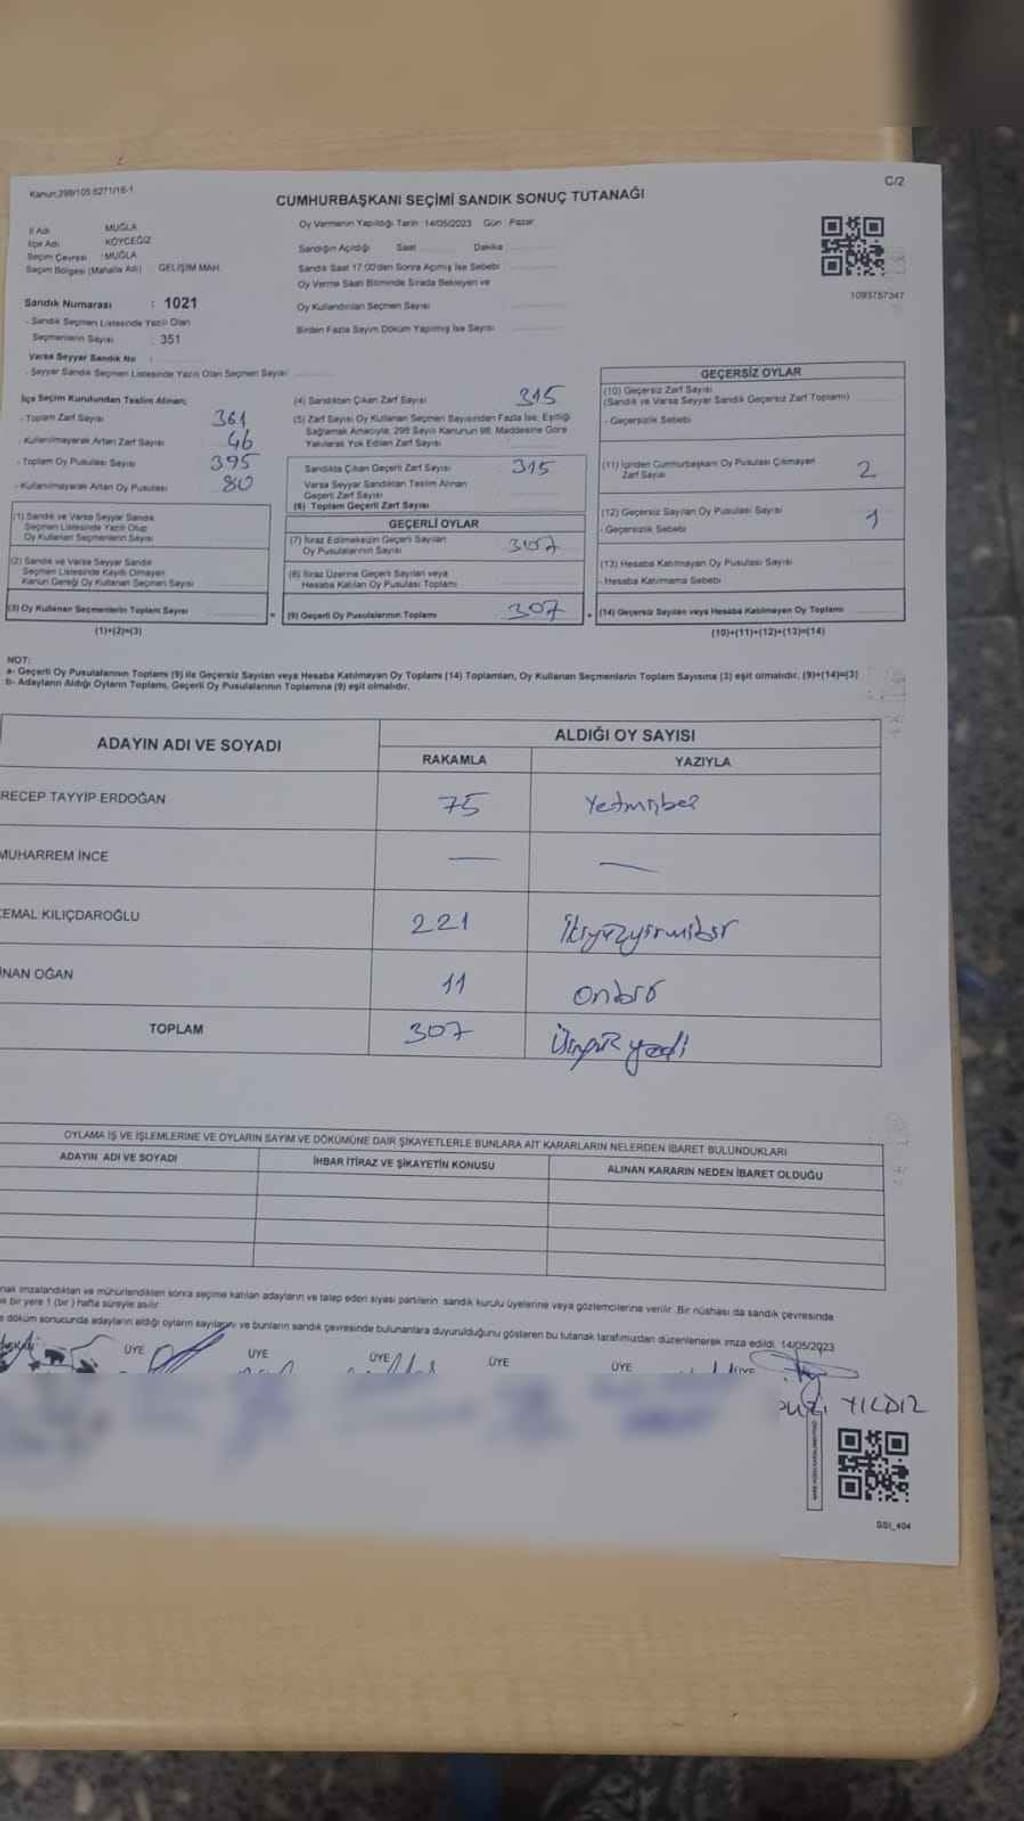 Kanun:298/105 6271/16-1
C/2
CUMHURBAŞKANI SEÇİMİ SANDIK SONUÇ TUTANAĞI
İl Adı MUĞLA
İlçe Adı KÖYCEĞİZ
Seçim Çevresi :MUĞLA
Seçim Bölgesi (Mahalle Adı) GELİŞİM MAH.
Sandık Numarası : 1021
- Sandık Seçmen Listesinde Yazılı Olan
Seçmenlerin Sayısı 351
Varsa Seyyar Sandık No :
- Seyyar Sandık Seçmen Listesinde Yazılı Olan Seçmen Sayısı
Oy Vermenin Yapıldığı Tarih : 14/05/2023 Gün : Pazar
Sandığın Açıldığı Saat Dakika
Sandık Saat 17.00'den Sonra Açılmış İse Sebebi
Oy Verme Saati Bitiminde Sırada Bekleyen ve
Oy Kullandırılan Seçmen Sayısı
Birden Fazla Sayım Döküm Yapılmış İse Sayısı
1093757347
İlçe Seçim Kurulundan Teslim Alınan;
- Toplam Zarf Sayısı 361
- Kullanılmayarak Artan Zarf Sayısı 46
- Toplam Oy Pusulası Sayısı 395
- Kullanılmayarak Artan Oy Pusulası 80
(1) Sandık ve Varsa Seyyar Sandık
Seçmen Listesinde Yazılı Olup
Oy Kullanan Seçmenlerin Sayısı
(2) Sandık ve Varsa Seyyar Sandık
Seçmen Listesinde Kayıtlı Olmayan
Kanun Gereği Oy Kullanan Seçmen Sayısı
(3) Oy Kullanan Seçmenlerin Toplam Sayısı
(1)+(2)=(3)
(4) Sandıktan Çıkan Zarf Sayısı 315
(5) Zarf Sayısı Oy Kullanan Seçmen Sayısından Fazla İse, Eşitliği
Sağlamak Amacıyla, 298 Sayılı Kanunun 98. Maddesine Göre
Yakılarak Yok Edilen Zarf Sayısı
Sandıkta Çıkan Geçerli Zarf Sayısı 315
Varsa Seyyar Sandıktan Teslim Alınan
Geçerli Zarf Sayısı
(6) Toplam Geçerli Zarf Sayısı
GEÇERLİ OYLAR
(7) İtiraz Edilmeksizin Geçerli Sayılan
Oy Pusulalarının Sayısı 307
(8) İtiraz Üzerine Geçerli Sayılan veya
Hesaba Katılan Oy Pusulası Toplamı
(9) Geçerli Oy Pusulalarının Toplamı 307
GEÇERSİZ OYLAR
(10) Geçersiz Zarf Sayısı
(Sandık ve Varsa Seyyar Sandık Geçersiz Zarf Toplamı)
- Geçersizlik Sebebi
(11) İçinden Cumhurbaşkanı Oy Pusulası Çıkmayan
Zarf Sayısı 2
(12) Geçersiz Sayılan Oy Pusulası Sayısı 1
- Geçersizlik Sebebi
(13) Hesaba Katılmayan Oy Pusulası Sayısı
- Hesaba Katılmama Sebebi
(14) Geçersiz Sayılan veya Hesaba Katılmayan Oy Toplamı
(10)+(11)+(12)+(13)=(14)
NOT:
a- Geçerli Oy Pusulalarının Toplamı (9) ile Geçersiz Sayılan veya Hesaba Katılmayan Oy Toplamı (14) Toplamları, Oy Kullanan Seçmenlerin Toplam Sayısına (3) eşit olmalıdır. (9)+(14)=(3)
b- Adayların Aldığı Oyların Toplamı, Geçerli Oy Pusulalarının Toplamına (9) eşit olmalıdır.
ADAYIN ADI VE SOYADI ALDIĞI OY SAYISI
RAKAMLA YAZIYLA
RECEP TAYYİP ERDOĞAN 75 Yetmişbeş
MUHARREM İNCE — —
KEMAL KILIÇDAROĞLU 221 İkiyüzyirmibir
İNAN OĞAN 11 Onbir
TOPLAM 307 Üçyüz yedi
OYLAMA İŞ VE İŞLEMLERİNE VE OYLARIN SAYIM VE DÖKÜMÜNE DAİR ŞİKAYETLERLE BUNLARA AİT KARARLARIN NELERDEN İBARET BULUNDUKLARI
ADAYIN ADI VE SOYADI İHBAR İTİRAZ VE ŞİKAYETİN KONUSU ALINAN KARARIN NEDEN İBARET OLDUĞU
nak imzalandıktan ve mühürlendikten sonra seçime katılan adayların ve talep eden siyasi partilerin sandık kurulu üyelerine veya gözlemcilerine verilir. Bir nüshası da sandık çevresinde
k bir yere 1 (bir ) hafta süreyle asılır.
e döküm sonucunda adayların aldığı oyların sayılarını ve bunların sandık çevresinde bulunanlara duyurulduğunu gösteren bu tutanak tarafımızdan düzenlenerek imza edildi. 14/05/2023
ÜYE ÜYE ÜYE ÜYE ÜYE ÜYE
YILDIZ
SSI_404